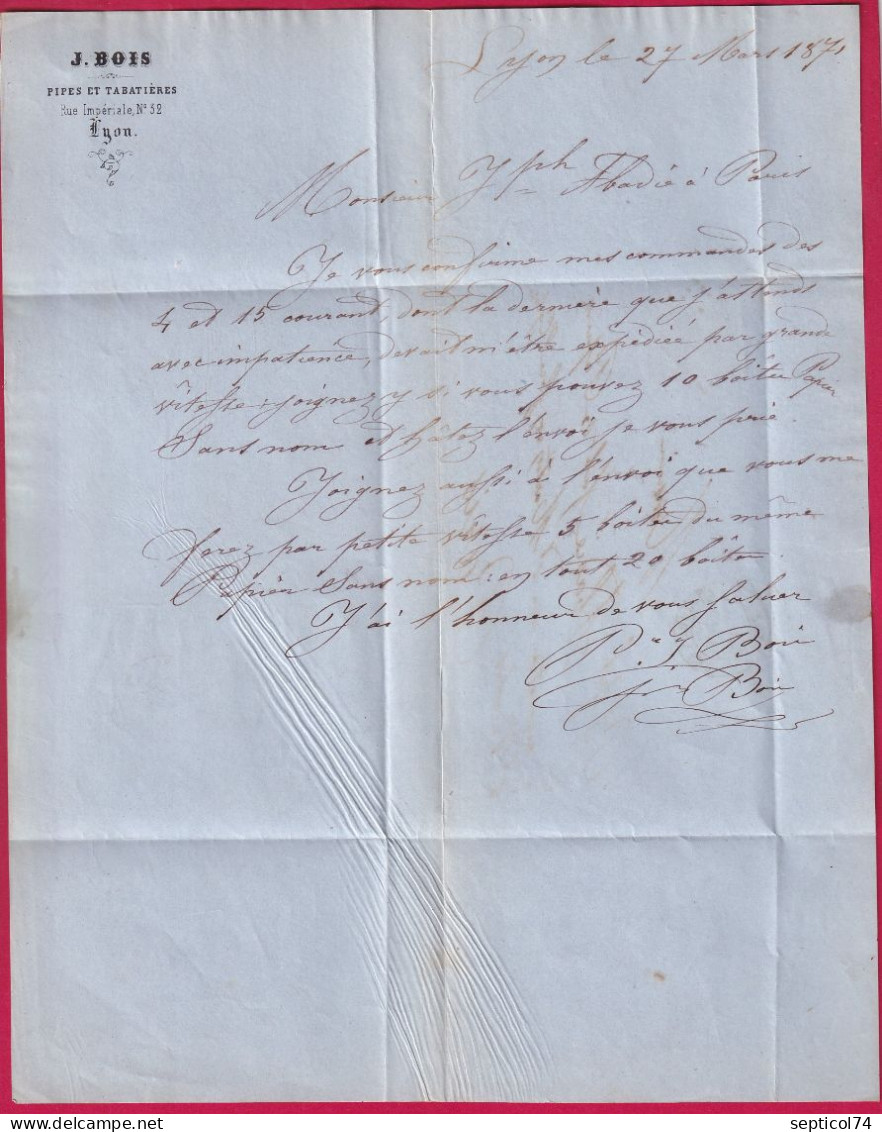 J. BOIS
PIPES ET TABATIÈRES
Rue Impériale, N° 52
Lyon.
Lyon le 27 Mars 1871
Monsieur Jph Abadie à Paris
Je vous confirme mes commandes des
4 et 15 courant, dont la dernière que j'attends
avec impatience, devait m'être expédiée par grande
vitesse : joignez y si vous pouvez 10 boites Papier
Sans nom et hâtez l'envoi je vous prie
Joignez aussi à l'envoi que vous me
ferez par petite vitesse 5 boites du même
Papier Sans nom : en tout 20 boîtes
J'ai l'honneur de vous saluer
P. J Bois
Bois
septicol74